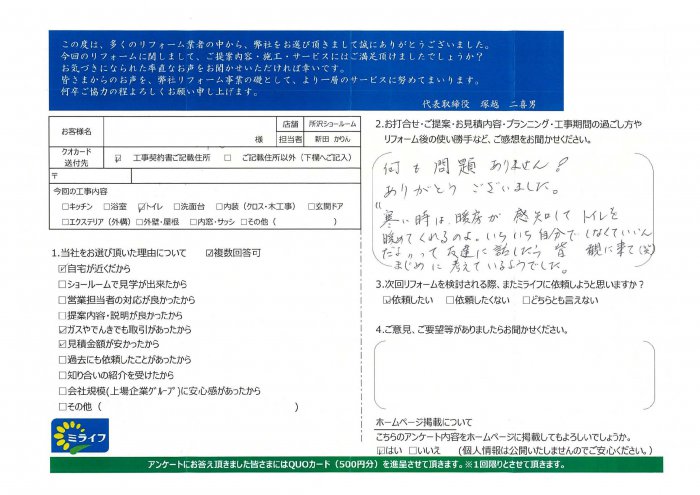 この度は、多くのリフォーム業者の中から、弊社をお選び頂きまして誠にありがとうございました。
今回のリフォームに関しまして、ご提案内容・施工・サービスにはご満足頂けましたでしょうか？
お気づきになられた率直なお声をお聞かせいただければ幸いです。
皆さまからのお声を、弊社リフォーム事業の礎として、より一層のサービスに努めてまいります。
何卒ご協力の程よろしくお願い申し上げます。
代表取締役 塚越 二喜男
お客様名 様
店舗 所沢ショールーム
担当者 新田 かりん
クオカード
送付先
☑ 工事契約書ご記載住所 □ ご記載住所以外（下欄へご記入）
〒
今回の工事内容
□キッチン □浴室 ☑トイレ □洗面台 □内装（クロス・木工事） □玄関ドア
□エクステリア（外構） □外壁・屋根 □内窓・サッシ □その他（ ）
1.当社をお選び頂いた理由について ☑複数回答可
☑自宅が近くだから
□ショールームで見学が出来たから
□営業担当者の対応が良かったから
□提案内容・説明が良かったから
☑ガスやでんきでも取引があったから
☑見積金額が安かったから
□過去にも依頼したことがあったから
□知り合いの紹介を受けたから
□会社規模(上場企業ｸﾞﾙｰﾌﾟ)に安心感があったから
□その他（ ）
ミライフ
2.お打合せ・ご提案・お見積内容・プランニング・工事期間の過ごし方や
リフォーム後の使い勝手など、ご感想をお聞かせください。
何も問題ありません！
ありがとうございました。
"寒い時は、暖房が感知してトイレを
暖めてくれるのよ。いちいち自分でしなくていいん
だよ"って友達に話したら皆 観に来て(笑)
まじめに考えているようでした。
3.次回リフォームを検討される際、またミライフに依頼しようと思いますか？
☑依頼したい □依頼したくない □どちらとも言えない
4.ご意見、ご要望等がありましたらお聞かせください。
ホームページ掲載について
こちらのアンケート内容をホームページに掲載してもよろしいでしょうか。
☑はい □いいえ （個人情報は公開いたしませんのでご安心ください。）
アンケートにお答え頂きました皆さまにはQUOカード（500円分）を進呈させて頂きます。※1回限りとさせて頂きます。